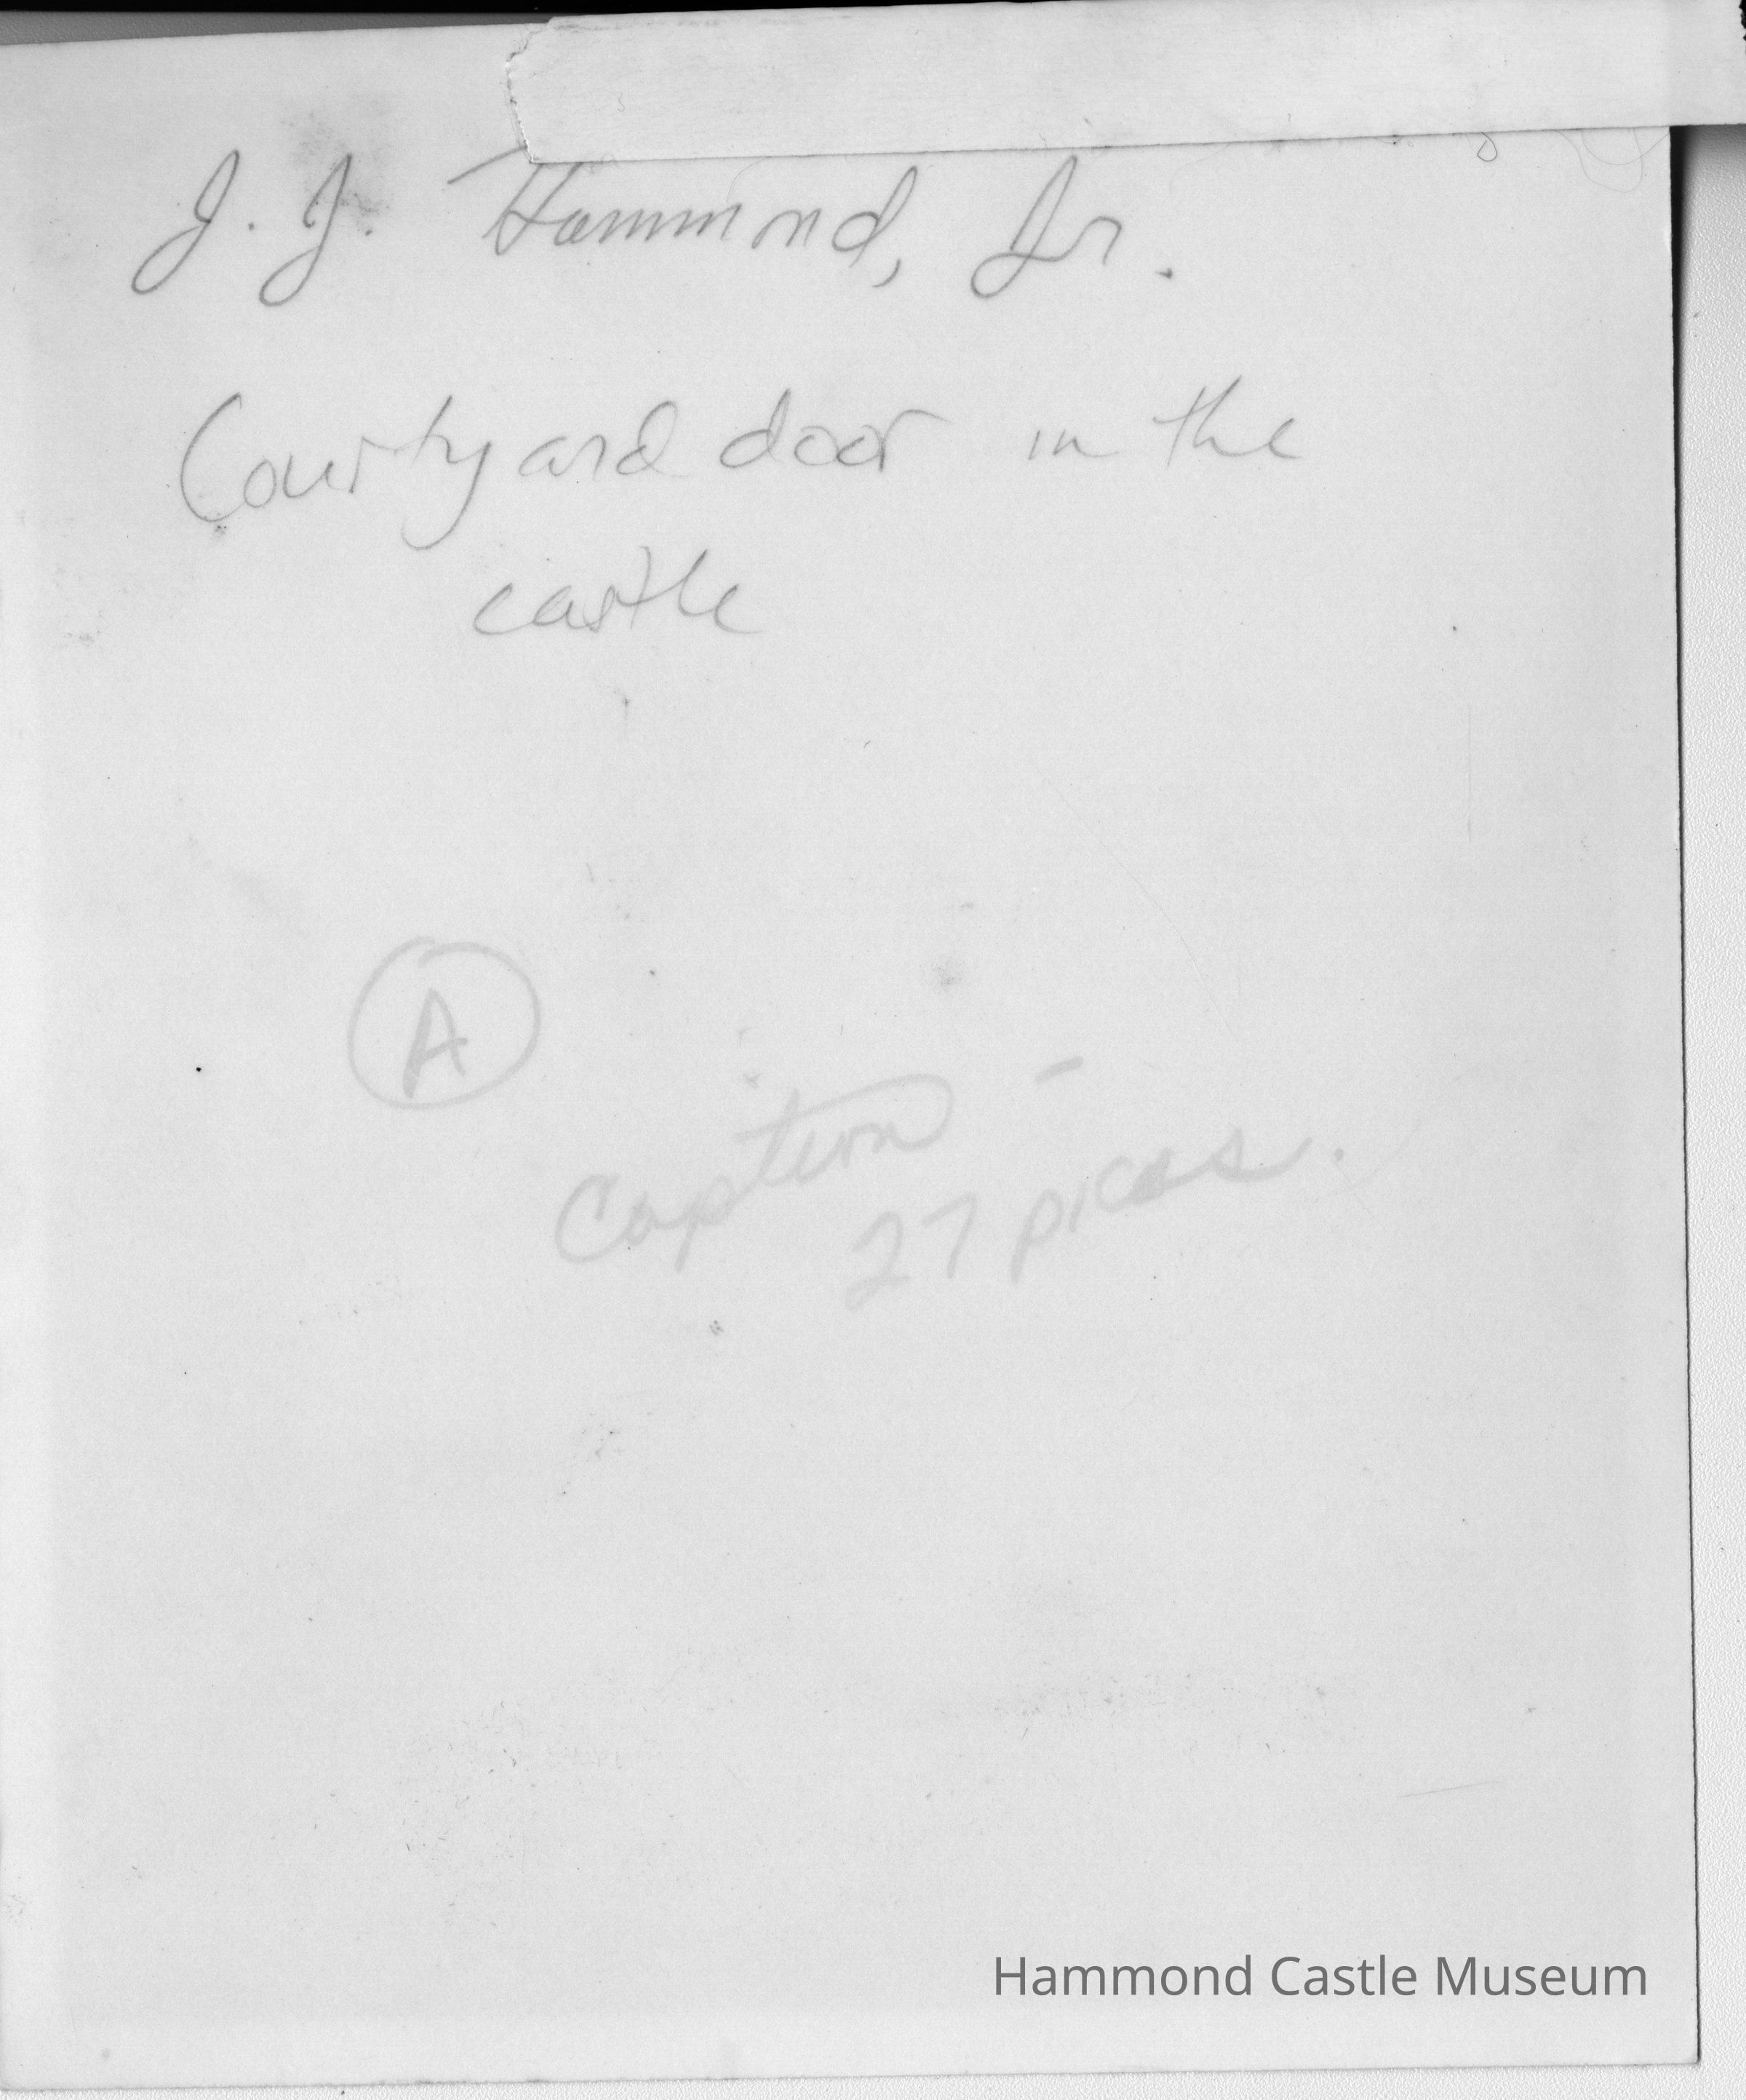 J. J. Hammond, Jr.
Courtyard door in the
castle
A
Caption -
27 picas.
Hammond Castle Museum